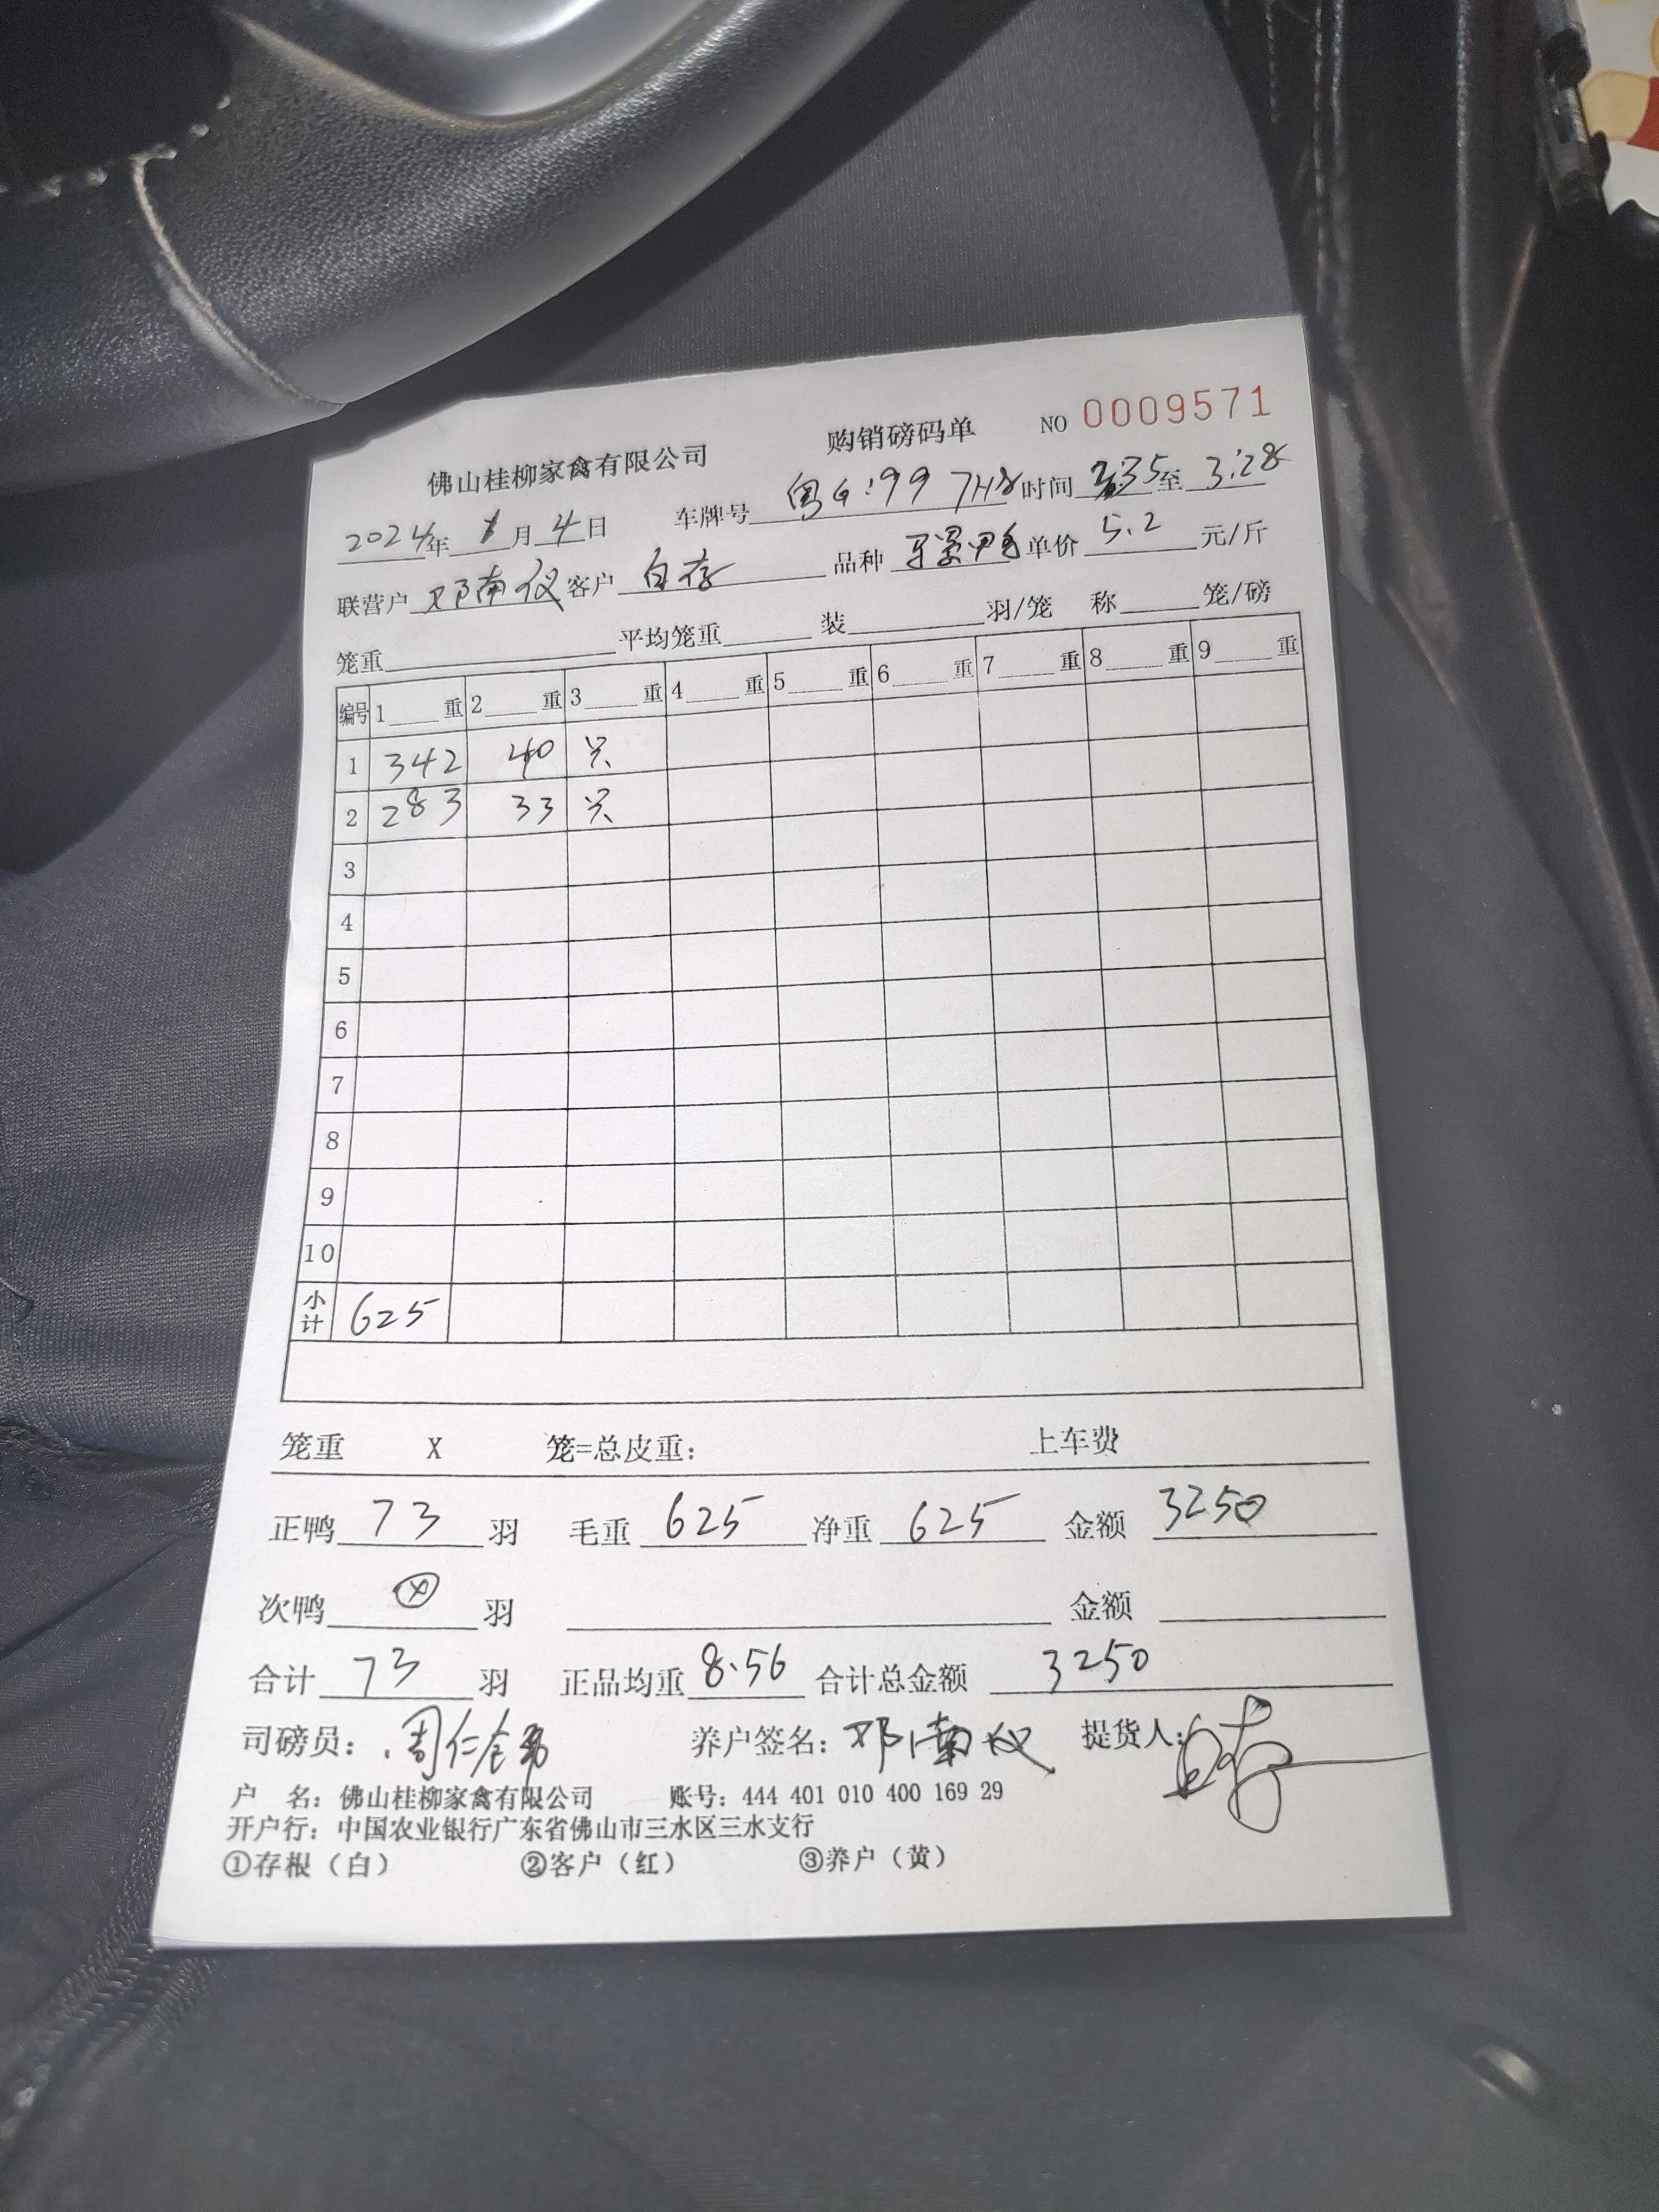 佛山桂柳家禽有限公司 购销磅码单 NO 0009571
2024年 月 4日 车牌号 粤G:997H8 时间 至 3:28
联营户 邓南仪 客户 自存 品种 单价 5.2 元/斤
笼重 平均笼重 装 羽/笼 称 笼/磅
编号 1 重 2 重 3 重 4 重 5 重 6 重 7 重 8 重 9 重
1 342 40 只
2 283 33 只
3
4
5
6
7
8
9
10
小计 625
笼重 X 笼=总皮重: 上车费
正鸭 73 羽 毛重 625 净重 625 金额 3250
次鸭 羽 金额
合计 73 羽 正品均重 8.56 合计总金额 3250
司磅员: 周仁 养户签名: 邓南仪 提货人: 自存
户 名: 佛山桂柳家禽有限公司 账号: 444 401 010 400 169 29
开户行: 中国农业银行广东省佛山市三水区三水支行
①存根（白） ②客户（红） ③养户（黄）